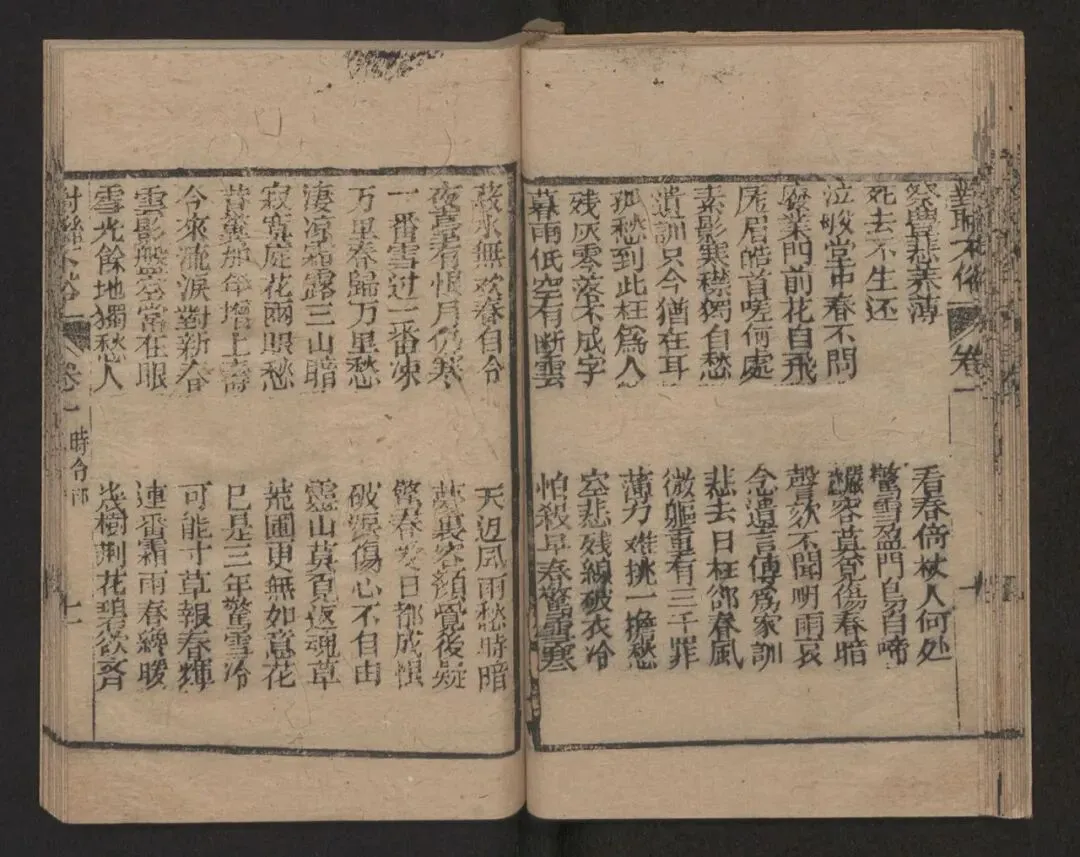 對聯不俗 卷一 十
祭豊悲养薄
死去不生还
泣 堂中春不問
廢業門前花自飛
厐眉皓首嗟何處
素影寒襟獨自愁
遺訓只今猶在耳
孤愁到此枉爲人
残灰零落不成字
暮雨低空有断雲
看春倚杖人何处
驚雪盈門鳥自啼
容莫覓傷春暗
聲欬不聞明雨哀
念遺言傳爲家訓
悲去日枉卻春風
微軀重有三千罪
薄力难挑一擔愁
空悲残線破衣冷
怕殺早春驚雪寒
菽水無欢春自合
夜臺有恨月仍寒
一番雪过一番凍
万里春歸万里愁
淒凉霜露三山暗
寂寞庭花兩眼愁
昔歲那年增上壽
今來流淚對新春
雲影 空常在眼
雪光餘地獨愁人
天迢风雨愁時暗
夢裏容顏覺後疑
驚春爱日都成恨
破淚傷心不自由
靈山莫覓返魂草
圃更無如意花
已是三年驚雪冷
可能寸草報春輝
連番霜雨春纔暖
幾樹荆花碧欲齊
對聯不俗 卷一 時令部 十一